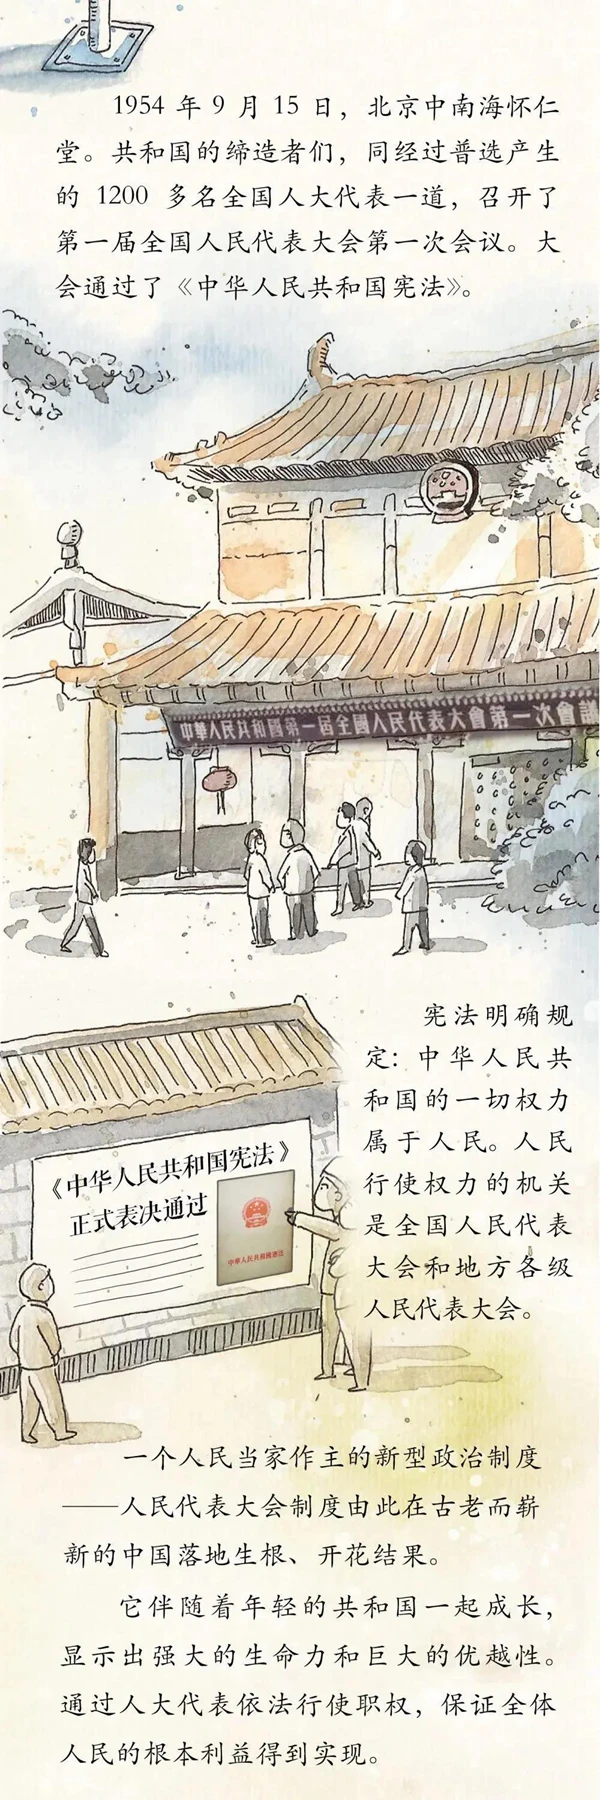 1954 年 9 月 15 日，北京中南海怀仁
堂。共和国的缔造者们，同经过普选产生
的 1200 多名全国人大代表一道，召开了
第一届全国人民代表大会第一次会议。大
会通过了《中华人民共和国宪法》。
中華人民共和國第一屆全國人民代表大會第一次會議
宪法明确规
定：中华人民共
和国的一切权力
属于人民。人民
行使权力的机关
是全国人民代表
大会和地方各级
人民代表大会。
《中华人民共和国宪法》
正式表决通过
中華人民共和國憲法
一个人民当家作主的新型政治制度
——人民代表大会制度由此在古老而崭
新的中国落地生根、开花结果。
它伴随着年轻的共和国一起成长，
显示出强大的生命力和巨大的优越性。
通过人大代表依法行使职权，保证全体
人民的根本利益得到实现。